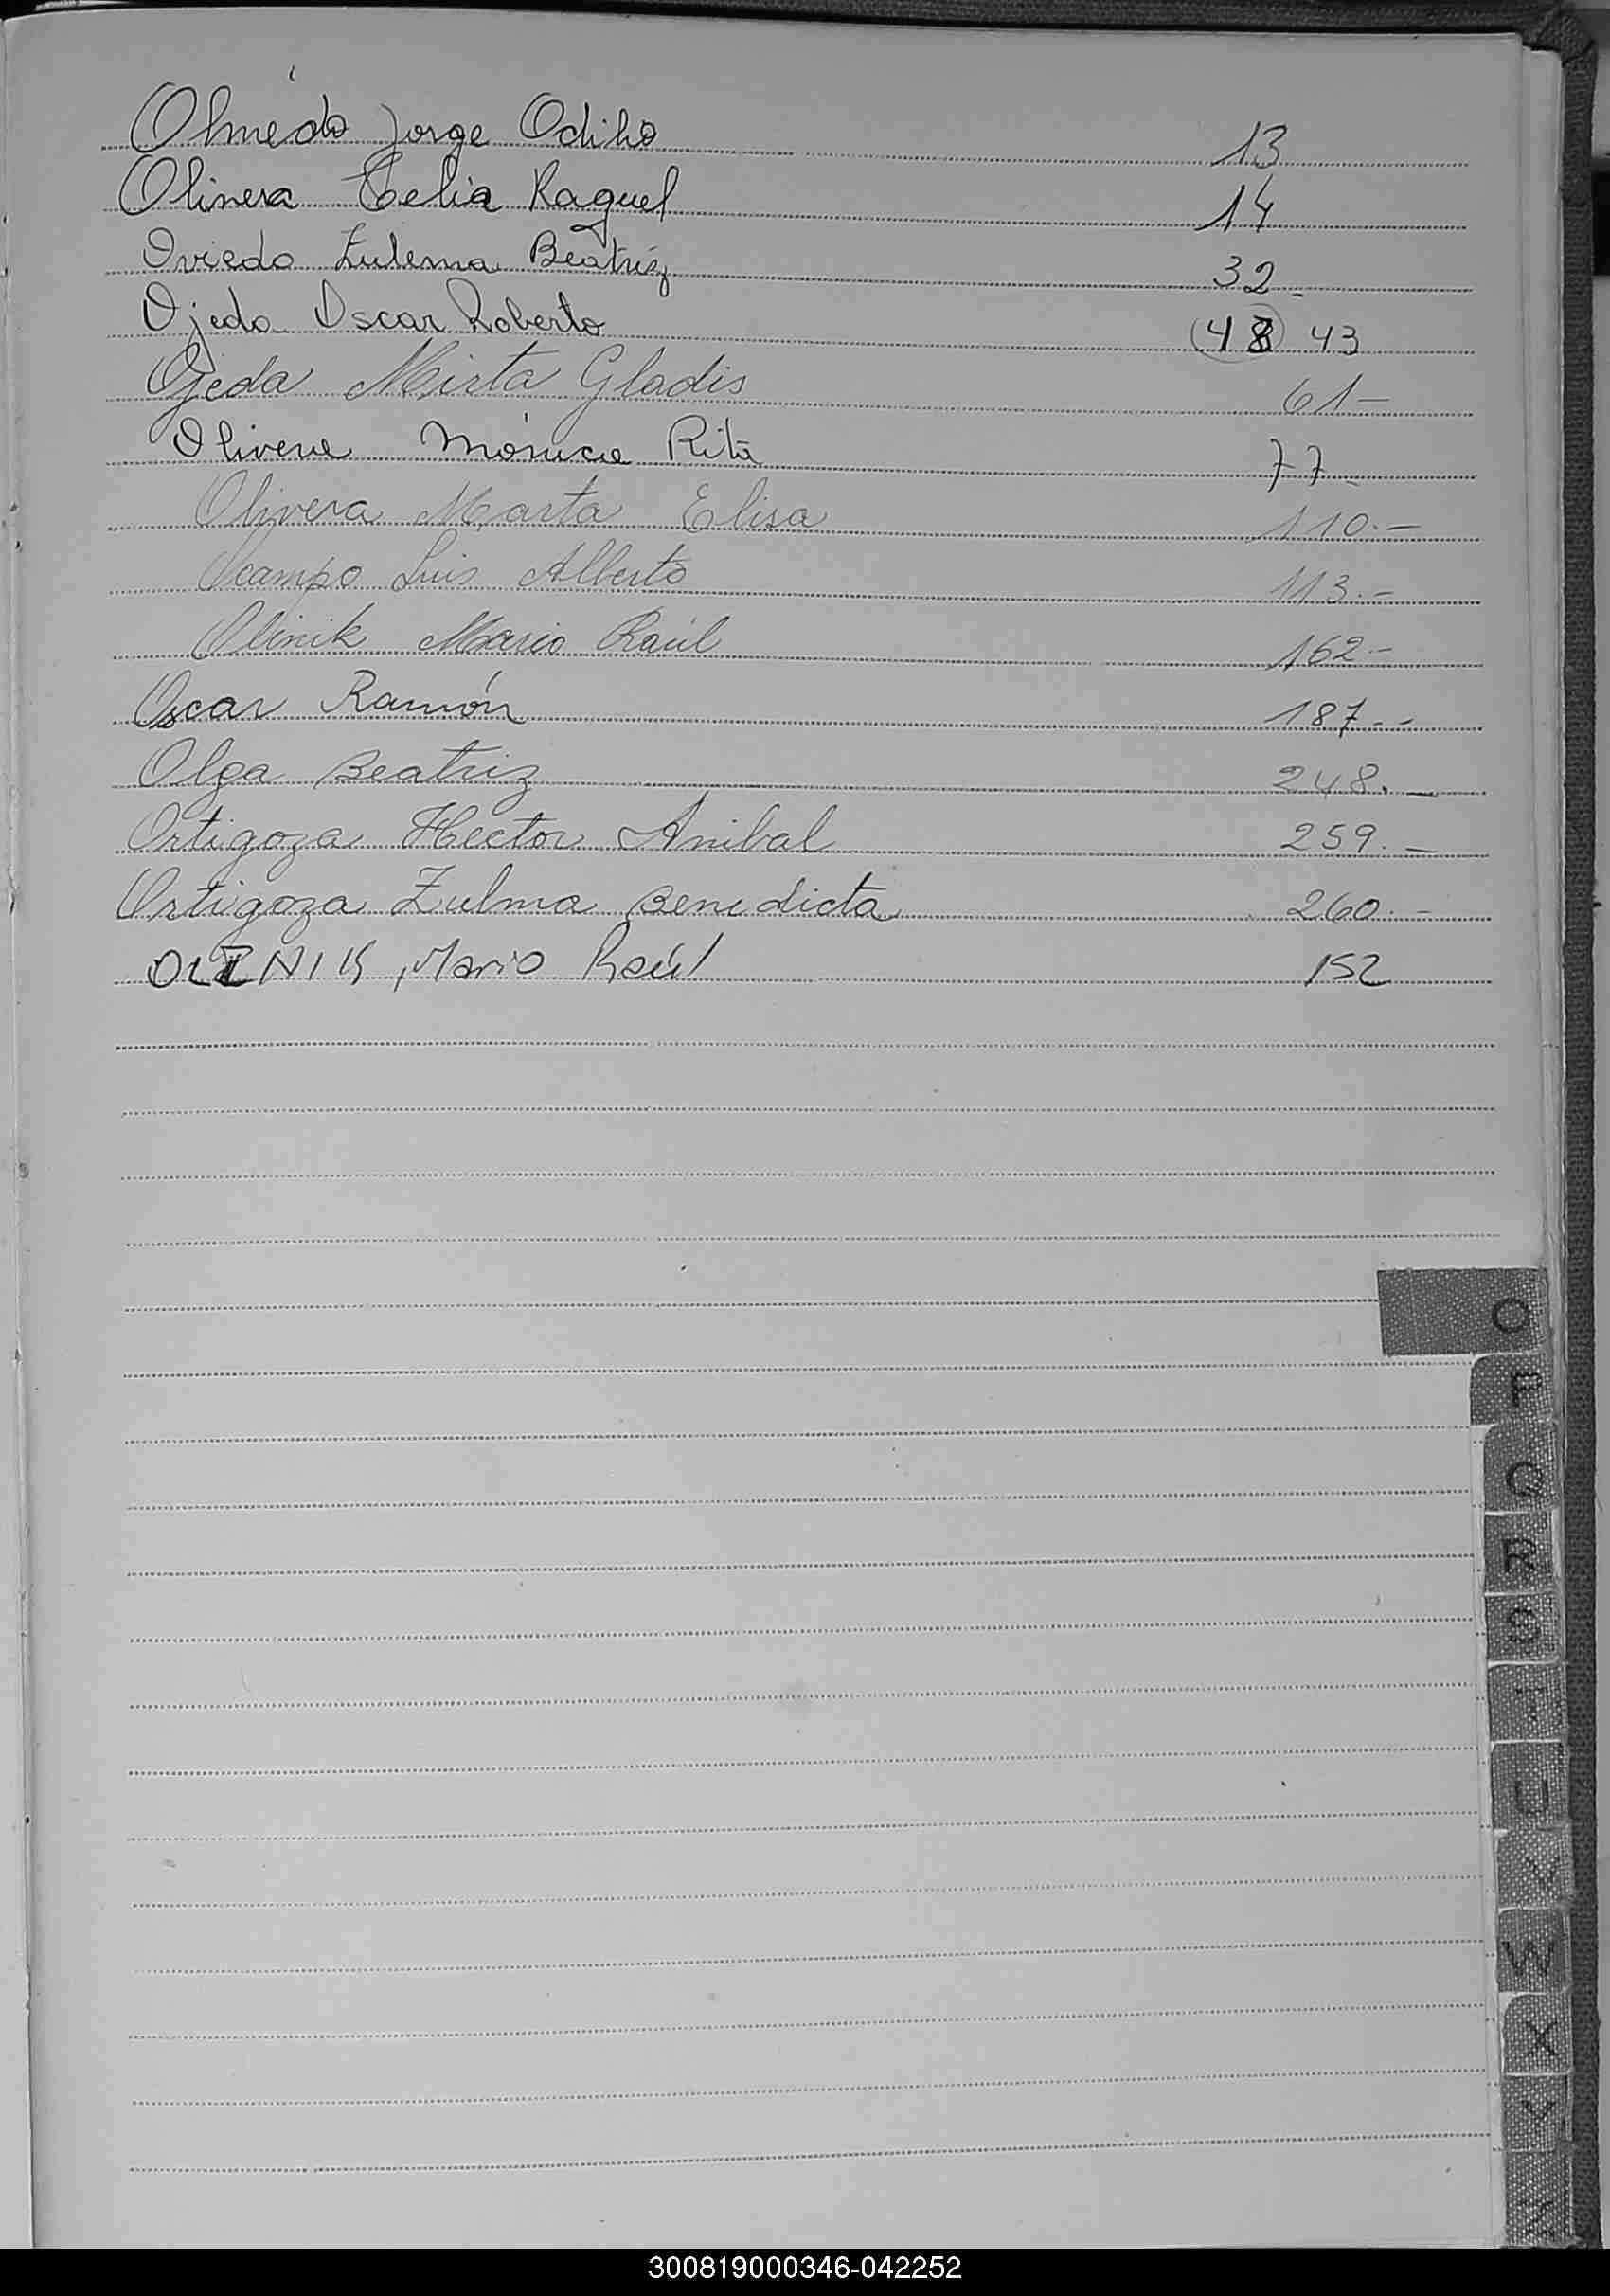 Olmedo Jorge Odilio 13
Olivera Celia Raquel 14
Oviedo Zulema Beatriz 32-
Ojeda Oscar Roberto (48) 43
Ojeda Mirta Gladis 61-
Olivera Mónica Rita 77-
Olivera Marta Elisa 110.-
Ocampo Luis Alberto 113.-
Olinik Mario Raúl 162-
Oscar Ramón 187.--
Olga Beatriz 248.-
Ortigoza Hector Anibal 259.-
Ortigoza Zulma Benedicta 260.-
OLINIK, Mario Raúl 152
O
P
Q
R
S
T
U
V
W
X
Y
Z
300819000346-042252